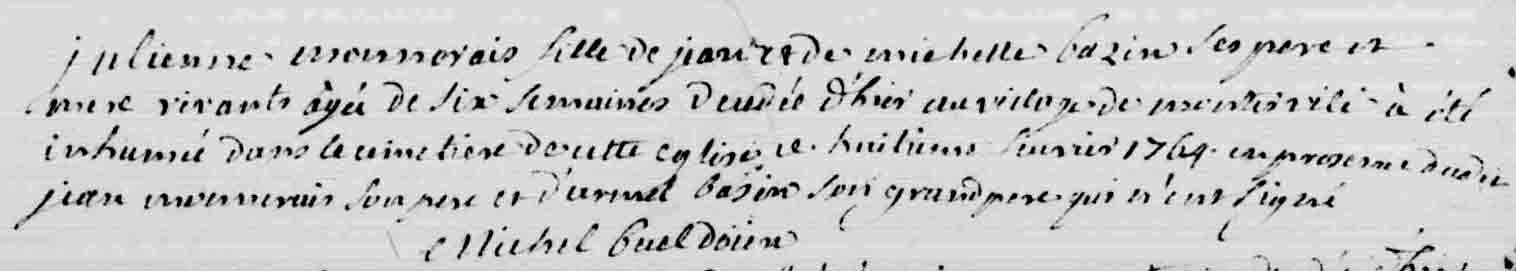 julienne monnerais fille de jean et de michelle bazin ses pere et
mere vivants âgée de six semaines decedée d'hier au village de à été
inhumé dans le cimetiere de cette eglise ce huitieme fevrier 1764 en presence dudit
jean monnerais son pere et d'armel bazin son grand pere qui n'ont signé
Michel